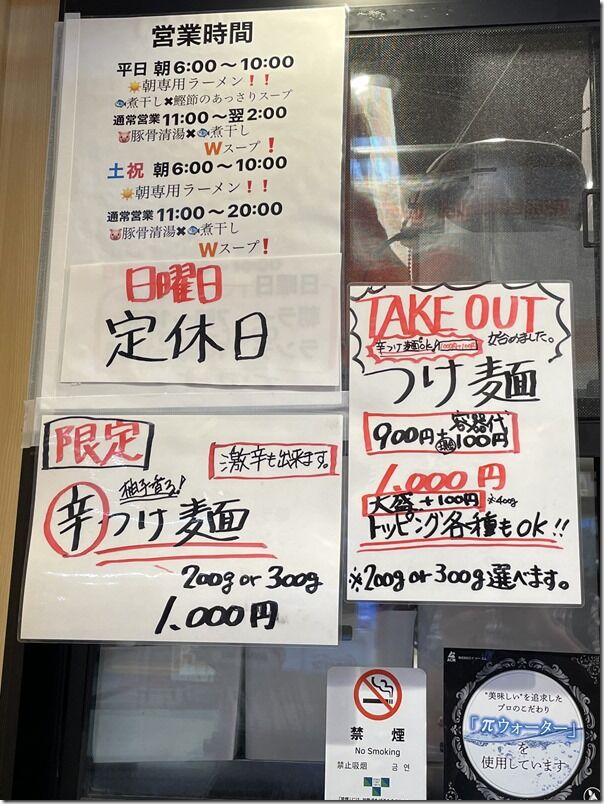 営業時間
平日 朝 6:00〜10:00
朝専用ラーメン！！
煮干し✖鰹節のあっさりスープ
通常営業 11:00〜翌2:00
豚骨清湯✖煮干し
Wスープ！
土祝 朝 6:00〜10:00
朝専用ラーメン！！
通常営業 11:00〜20:00
豚骨清湯✖煮干し
Wスープ！
日曜日
定休日
TAKE OUT
辛つけ麺OK！
始めました。
つけ麺
900円＋容器代100円
1,000円
大盛＋100円 ※400g
トッピング各種もOK!!
※200g or 300g選べます。
限定
激辛も出来ます。
辛つけ麺
200g or 300g
1,000円
禁煙
No Smoking
禁止吸烟 금연
"美味しい"を追求した
プロのこだわり
「πウォーター」
を
使用しています